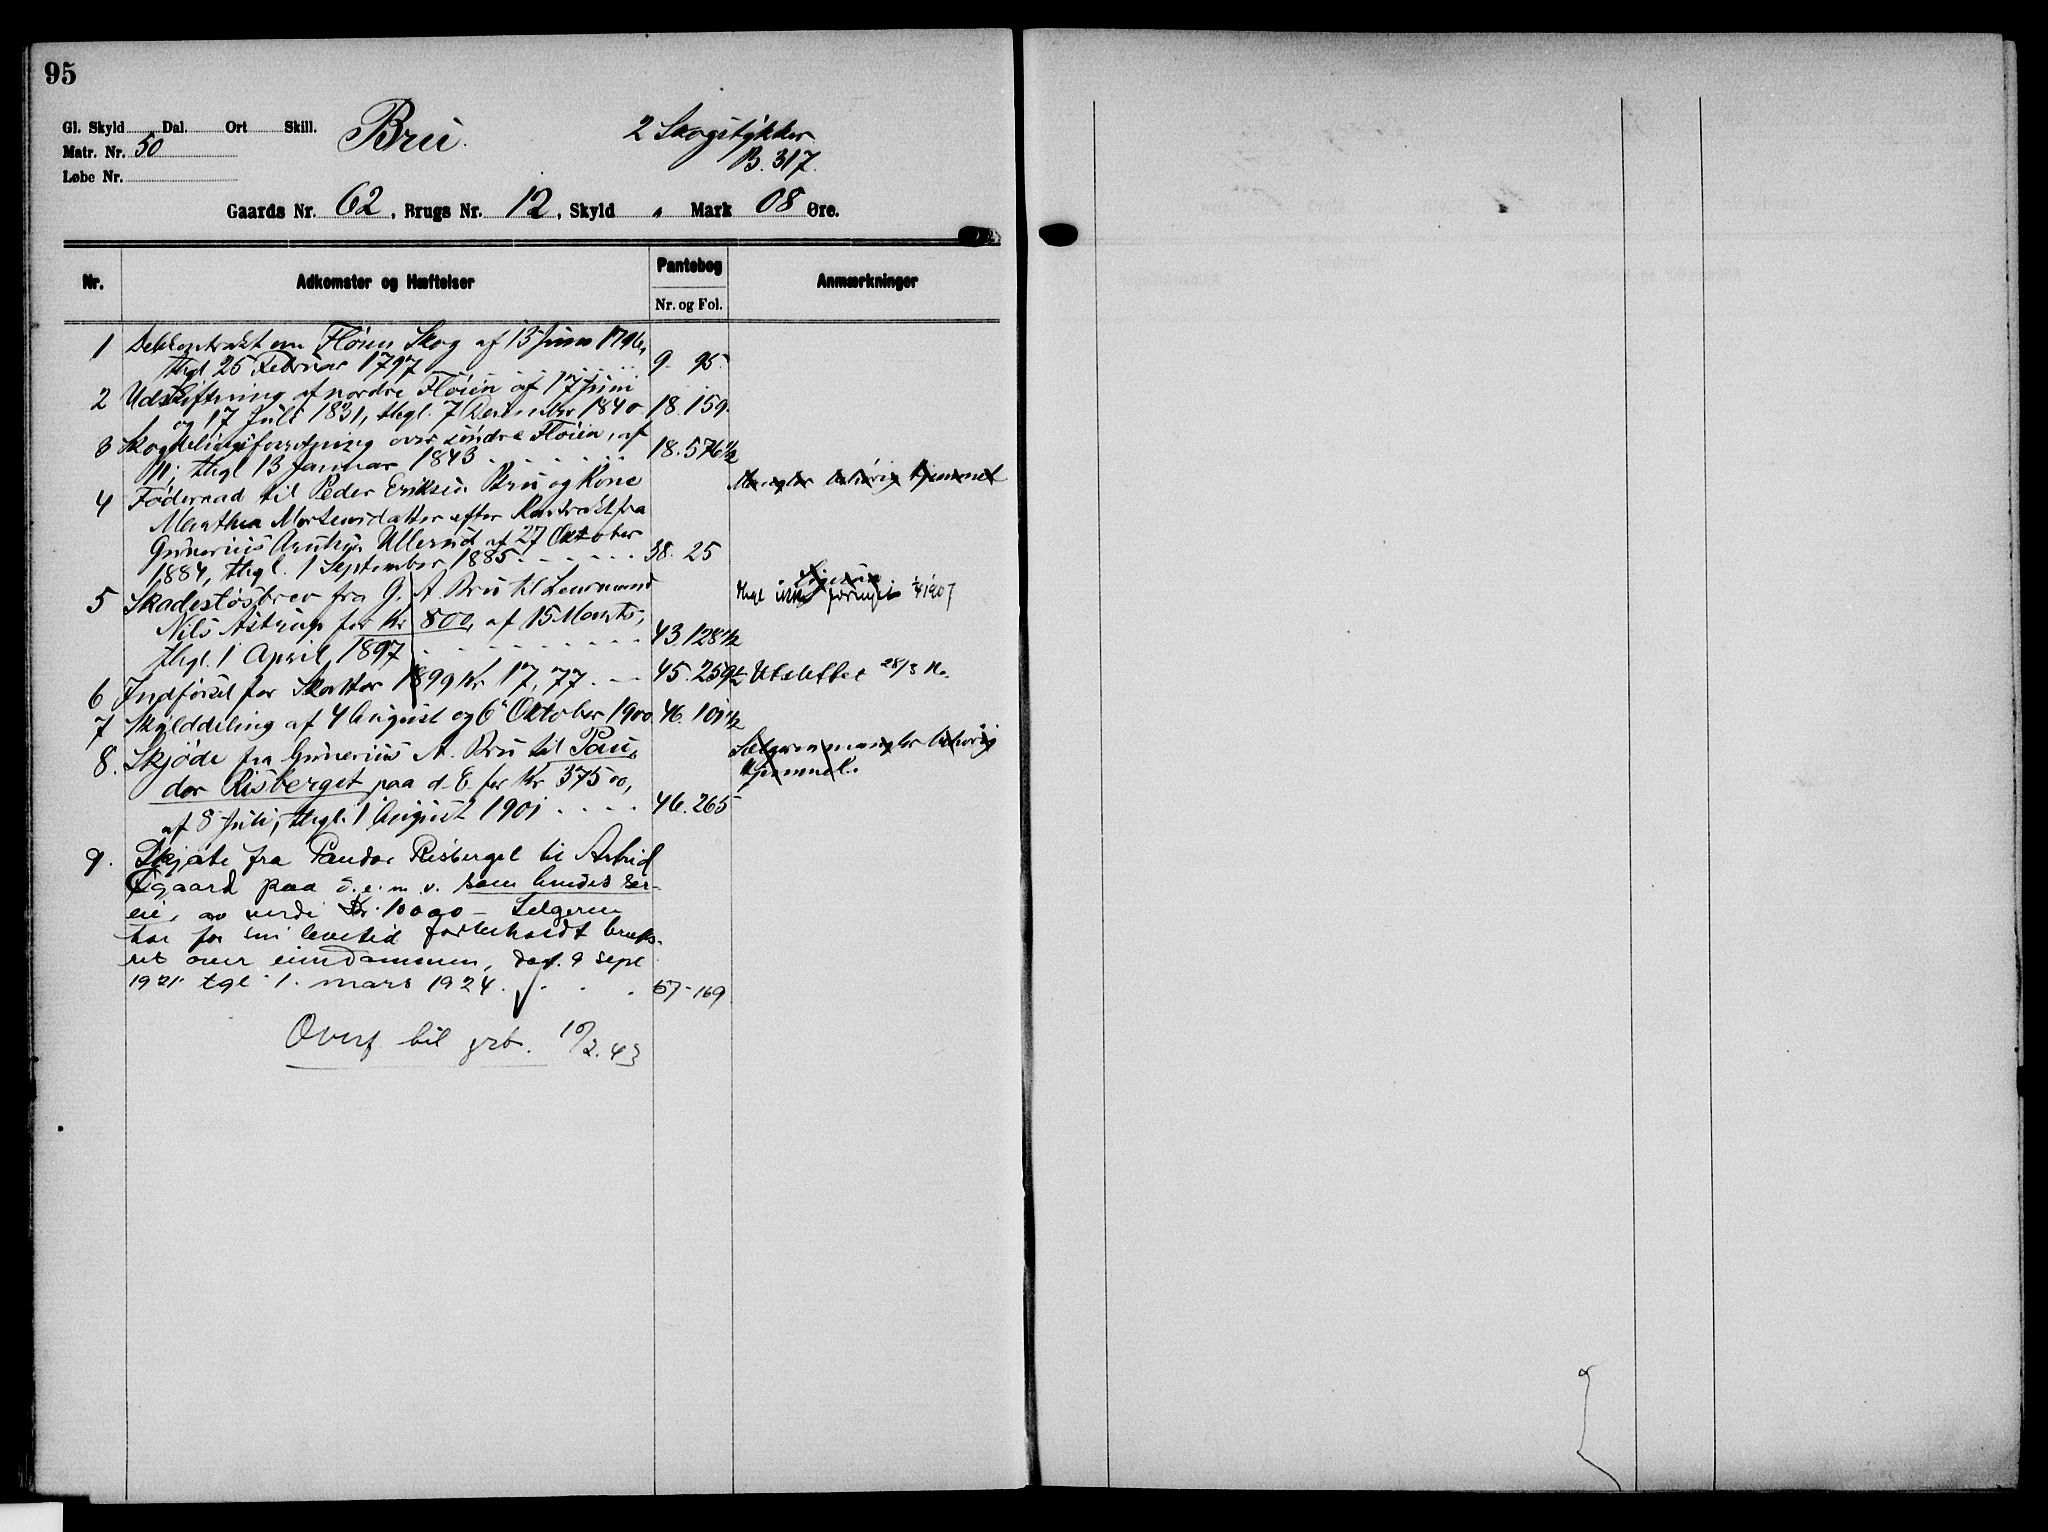 95
Gl. Skyld Dal. Ort Skill.
Bru.
2 Skogstykker
B. 317.
Matr. Nr. 50
Løbe Nr.
Gaards Nr. 62, Brugs Nr. 12, Skyld " Mark 08 Øre.
Nr. Adkomster og Hæftelser Pantebog Anmærkninger
Nr. og Fol.
1 Delekontrakt om Fløien Skog af 13 Juni 1796,
thgl 25 Februar 1797 9. 95.
2 Udskiftning af nordre Fløien af 17 Juni
og 17 Juli 1831, thgl. 7 December 1840 18. 159.
3 Skogdelingsforretning over søndre Fløien, af
thgl 13 Januar 1843 18. 576 1/2
4 Føderaad til Peder Eriksen Bru og Kone Mangler behørig Hjemmel
Marthea Mortensdatter efter Kontrakt fra
Gunerius Ullerud af 27 Oktober
1884, thgl. 1 September 1885 38. 25
5 Skadesløsbrev fra G. A. Bru til Lensmand thgl ikke 1907
Nils Astrup for Kr 800, af 15 Marts,
thgl. 1 April 1897 43. 128 1/2
6 Indførsel for Skatter 1899 Kr 17,77. 45. 259 1/2 Utslettet 28/3
7 Skylddeling af 4 August og 6 Oktober 1900 46. 101 1/2
8. Skjøde fra Gunerius A. Bru til Pau- Sælgeren mangler behørig
der Risberget paa d. E for Kr 3750, Hjemmel.
af 8 Juli, thgl. 1 August 1901 46. 265
9. Skjøte fra Paudor Risberget til Astrid
Øgaard paa d. e. m. v. som hendes sær-
eie, av verdi Kr. 10000 – Selgeren
har for sin levetid forbeholdt bruks-
ret over eiendommen, dat. 9 sept
1921. tgl 1. mars 1924. 57-169
Overf. til grb. 10/2. 43